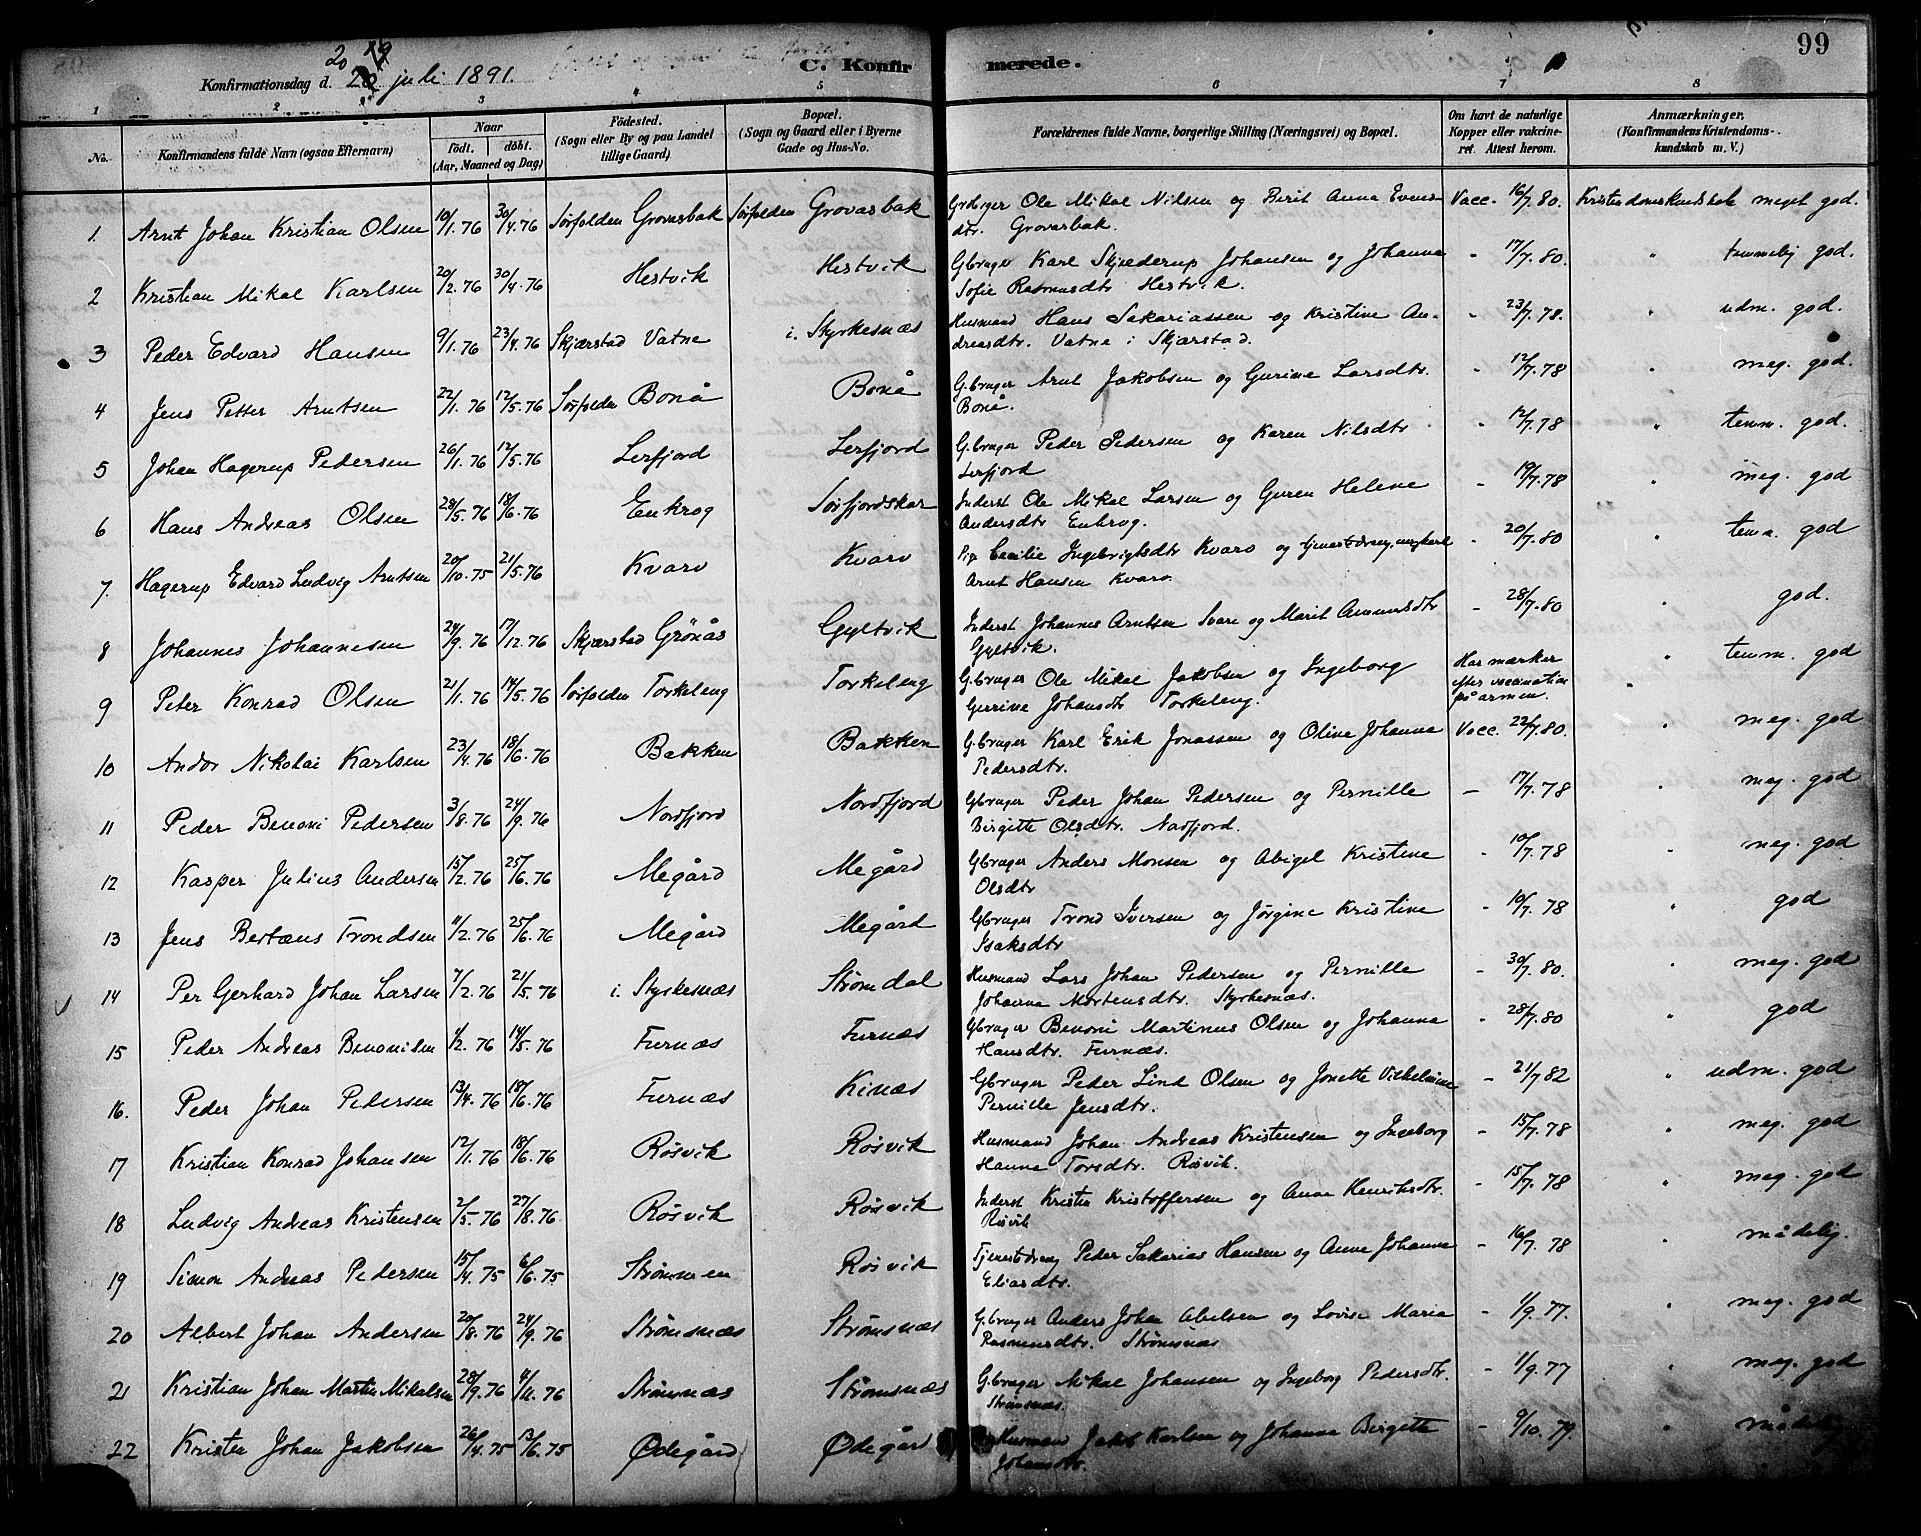 99
C. Konfirmerede.
Konfirmationsdag d. 20 juli 1891.
1 2 3 4 5 6 7 8
No. Konfirmandens fulde Navn (ogsaa Efternavn) Naar født. døbt. (Aar, Maaned og Dag) Fødested. (Sogn eller By og paa Landet tillige Gaard) Bopæl. (Sogn og Gaard eller i Byerne Gade og Hus-No. Forældrenes fulde Navne, borgerlige Stilling (Næringsvei) og Bopæl. Om havt de naturlige Kopper eller vakcineret. Attest herom. Anmærkninger. (Konfirmandens Kristendomskundskab m. V.)
1. Arnt Johan Kristian Olsen 10/1. 76 30/4. 76 Sørfolden Grovasbak Sørfolden Grovasbak Grdbrger Ole Mikal Nilsen og Berit Anna Evens-
dtr. Grovasbak. Vacc. 16/7. 80. Kristendomskundskab meget god.
2 Kristian Mikal Karlsen 20/2. 76 30/4. 76 Hestvik Hestvik Gbruger Karl Skjæderup Johansen og Johanna
Sofie Rasmusdtr Hestvik. - 17/7. 80. " temmelig god.
3 Peder Edvard Hansen 9/1. 76 23/4. 76 Skjærstad Vatne i. Styrkesnæs Husmand Hans Sakariassen og Kristine An-
dreasdtr. Vatne i Skjærstad. - 23/7. 78. " udm. god.
4 Jens Petter Arntsen 22/1. 76 12/5. 76 Sørfolden Bonå Bonå G.bruger Arnt Jakobsen og Gurine Larsdtr.
Bonå. - 12/7. 78 " meg. god.
5 Johan Hagerup Pedersen 26/1. 76 12/5. 76 Lerfjord Lerfjord G.bruger Peder Pedersen og Karen Nilsdtr
Lerfjord - 12/7. 78 " temm. god.
6 Hans Andreas Olsen 28/5. 76 18/6. 76 Enkrog Sørfjordskar Inderst Ole Mikal Larsen og Guren Helene
Andersdtr Enkrog. - 19/7. 78 " meg. god
7. Hagerup Edvard Ludvig Arntsen 20/10. 75 21/5. 76 Kvarv Kvarv Pige Cecilie Ingebrigtsdtr Kvarv og tjenestdreng, ungkarl
Arnt Hansen Kvarv. - 20/7. 80 " temm. god
8 Johannes Johannesen 24/9. 76 17/12. 76 Skjærstad Grønås Gyltvik Inderst Johannes Arntsen Svare og Marit Amundsdtr
Gyltvik. - 28/7. 80 " god.
9 Peter Konrad Olsen 21/1. 76 14/5. 76 Sørfolden Torkeleng Torkeleng G.bruger Ole Mikal Jakobsen og Ingeborg
Gurine Johansdtr Torkeleng. Har mærker
efter vaccination
på armen. " temm. god
10 Andor Nikolai Karlsen 23/4. 76 18/6. 76 Bakken Bakken G.bruger Karl Erik Jonassen og Oline Johanna
Pedersdtr. Vacc. 22/7. 80. " meg. god
11 Peder Benoni Pedersen 3/8. 76 24/9. 76 Nordfjord Nordfjord Gbruger Peder Johan Pedersen og Pernille
Birgitte Olsdtr. Nordfjord. - 17/7. 78 " meg. god
12 Kasper Julius Andersen 15/2. 76 25/6. 76 Megård Megård Gbruger Anders Monsen og Abigel Kristine
Olsdtr - 10/7. 78 " meg. god
13 Jens Bertæus Trondsen 11/2. 76 25/6. 76 Megård Megård Gbruger Trond Iversen og Jørgine Kristine
Isaksdtr - 10/7. 78 " god
14 Per Gerhard Johan Larsen 7/2. 76 21/5. 76 i. Styrkesnæs Strømdal Husmand Lars Johan Pedersen og Pernille
Johanna Mortensdtr. Styrkesnæs. - 30/7. 80. " meg. god
15 Peder Andreas Benonisen 4/2. 76 14/5. 76 Furnæs Furnæs Gbruger Benoni Martinus Olsen og Johanna
Hansdtr. Furnæs. - 28/7. 80 " god
16. Peder Johan Pedersen 13/4. 76 18/6. 76 Furnæs Kinæs Gbruger Peder Lind Olsen og Jonette Vilhelmine
Pernille Jensdtr. - 21/7 82 " udm. god
17 Kristian Konrad Johansen 12/1. 76 18/6. 76 Røsvik Røsvik Husmand Johan Andreas Kristensen og Ingeborg
Hanna Torsdtr. Røsvik. - 15/7. 78 " meg. god
18 Ludvig Andreas Kristensen 2/5. 76 27/8. 76 Røsvik Røsvik Inderst Kristen Kristoffersen og Anne Henriksdtr.
Røsvik - 15/7. 78 " meg. god
19 Simon Andreas Pedersen 15/4. 75 6/6. 75 Strømmen Røsvik Tjenestdreng Peder Sakarias Hansen og Anne Johanna
Eliasdtr. - 16/7. 78 " mådelig.
20 Albert Johan Andersen 20/8. 76 24/9. 76 Strømsnæs Strømsnæs G.bruger Anders Johan Abelsen og Lovise Maria
Rasmusdtr. Strømsnæs - 1/9. 77. " meg. god
21 Kristian Johan Martin Mikalsen 28/9. 76 4/11. 76 Strømsnæs Strømsnæs G.bruger Mikal Johansen og Ingeborg Pedersdtr.
Strømsnæs. - 1/9. 77 " meg. god
22 Kristen Johan Jakobsen 26/4. 75 13/6. 75 Ødegård Ødegård Husmand Jakob Karlsen og Johanna Birgitte
Johansdtr. - 9/10. 79. " mådelig